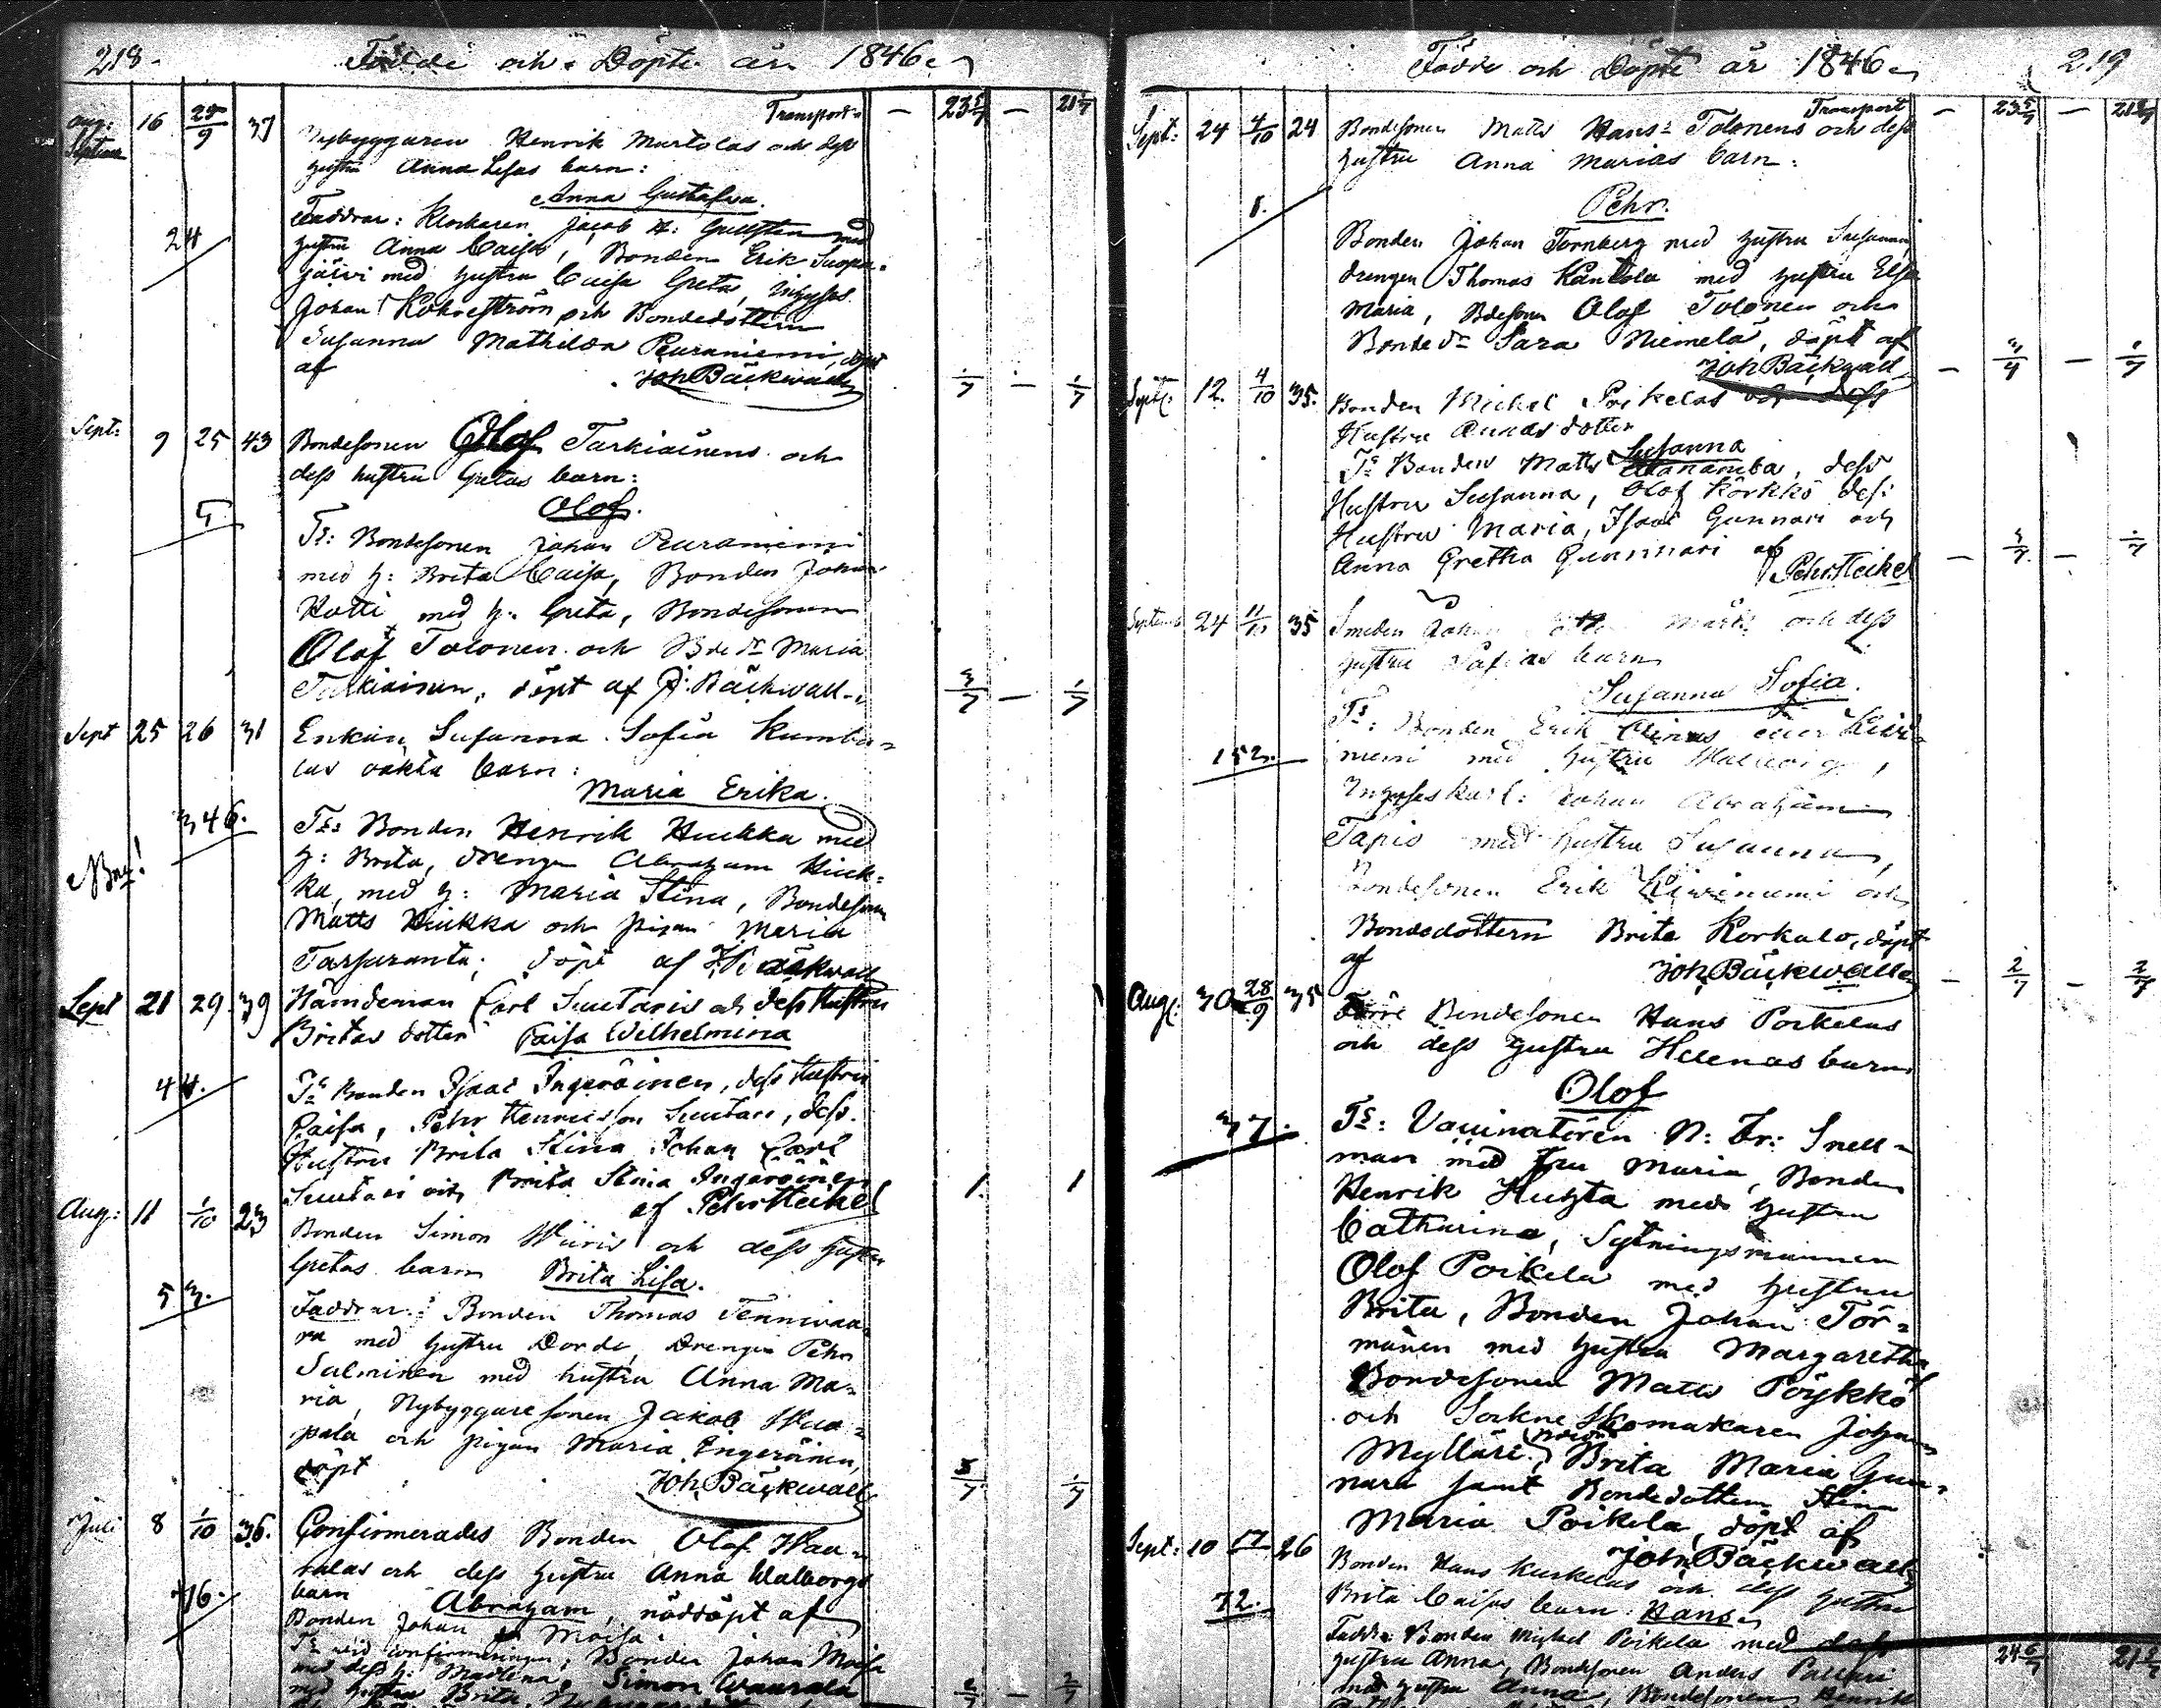 218.
Födde och Döpte år 1846.
Transport
23 5/7
21 1/7
Aug: 16 25/9 37
Nybyggaren Henrik Martolas och dess
hustru Anna Lisas barn:
Anna Gustafva.
24
Faddrar: Klockaren Jacob H: Gullsten med
hustru Anna Caisa, Bonden Erik Suopa-
järvi med hustru Caisa Greta, Inhyses
Johan och Bondedottern
Susanna Mathilda Peuraniemi, döpt
af Joh Bäckwall
1/7 – 1/7
Sept: 9 25 43
Bondesonen Olof Tarkiainens och
dess hustru Gretas barn:
Olof.
Fr: Bondesonen Johan Peuraniemi
med h: Brita Caisa, Bonden Johan
Hotti med h: Greta, Bondesonen
Olof Tolonen och Bde dr Maria
Tarkiainen, döpt af J: Bäckwall
3/7 – 1/7
Sept 25 26 31
Enkan Susanna Sofia Kumpu-
las oäkta barn:
Maria Erika.
346.
Fr: Bonden Henrik Hiukka med
h: Brita, drengen Abraham Hiuk-
ka, med h: Maria Stina, Bondesonen
Matts Hiukka och pigan Maria
döpt af J: Bäckwall
Sept 21 29 39
Nämdeman Carl Suutaris och dess Hustru
Britas dotter Caisa Wilhelmina
44.
Fr Bonden Isaac Ingeröinen, dess Hustru
Caisa, Pehr Henricsson Suutari, dess
Hustru Brita Stina Johan Carl
Suutari och Brita Stina Ingeröinen
af Pehr Heikel
1. 1
Aug: 11 1/10 23
Bonden Simon Wiiris och dess hustru
Gretas barn Brita Lisa.
53.
Faddrar: Bonden Thomas Tennivaa-
ra med hustru Dorde, Drengen Pehr
Salminen med hustru Anna Ma-
ria, Nybyggaresonen Jakob Waa-
pala och pigan Maria Engeröinen,
döpt Joh. Bäckwall
3/7 1/7
Juli 8 1/10 36.
Confirmerades Bonden Olof Waa-
ralas och dess hustru Anna Walborgs
barn Abraham, nöddöpt af
Bonden Johan Moisa.
Fr vid confirmeringen: Bonden Johan Moisa
med dess h: Madlena, Simon Waarala
med hustru Brita,
2/7 – 2/7
Födde och Döpte år 1846
219
Transport
– 23 5/7 –
Sept: 24 4/10 24
Bondesonen Matts Hans: Tolonens och dess
hustru Anna Marias barn:
Pehr.
1.
Bonden Johan Tornberg med hustru Susanna
drengen Thomas Kantola med hustru Elsa
Maria, Bdesonen Olof Tolonen och
Bonde dr Sara Niemelä, döpt af
Joh Bäckwall
1/7
Sept: 12. 4/10 35.
Bonden Michel Poikelas och dess
Hustru Annas dotter
Susanna
Fr Bonden Matts dess
Hustru Susanna, Olof Körkkö dess
Hustru Maria, Isaac Gunnari och
Anna Gretha Gunnari af
Pehr Heikel
Septemb 24 11/10 35
Smeden Johan och dess
hustru Sofias barn
Susanna Sofia.
Fr: Bonden Erik eller Kivi-
niemi med hustru Walborg,
152.
Inhyseskarl: Johan Abraham
Tapio med hustru Susanna,
Bondesonen Erik Kivinemi och
Bondedottern Brita Korkalo, döpt
af Joh Bäckwall
– 2/7 – 2/7
Aug: 30 28/9 35
Förre Bondesonen Hans Poikelas
och dess hustru Helenas barn
Olof
37.
Fr: Vaccinatören N: Fr: Snell-
man med fru Maria, Bonden
Henrik Huhta med hustru
Catharina, Sytningsmannen
Olof Poikela med hustru
Brita, Bonden Johan Tör-
mänen med hustru Margaretha
Bondesonen Matts Pöykkö
och Sockne Skomakaren Johan
Mylläri, Brita Maria Gun-
nari samt Bondedottern Stina
Maria Poikela, döpt af
Joh Bäckwall
Sept: 10 17 26
Bonden Hans Kuskelas och dess hustru
Brita Caisas barn: Hans
72.
Faddr. Bonden Michel Poikela med dess
hustru Anna, Bondesonen Anders
med hustru Anna, Bondesonen Henrik
24 6/7